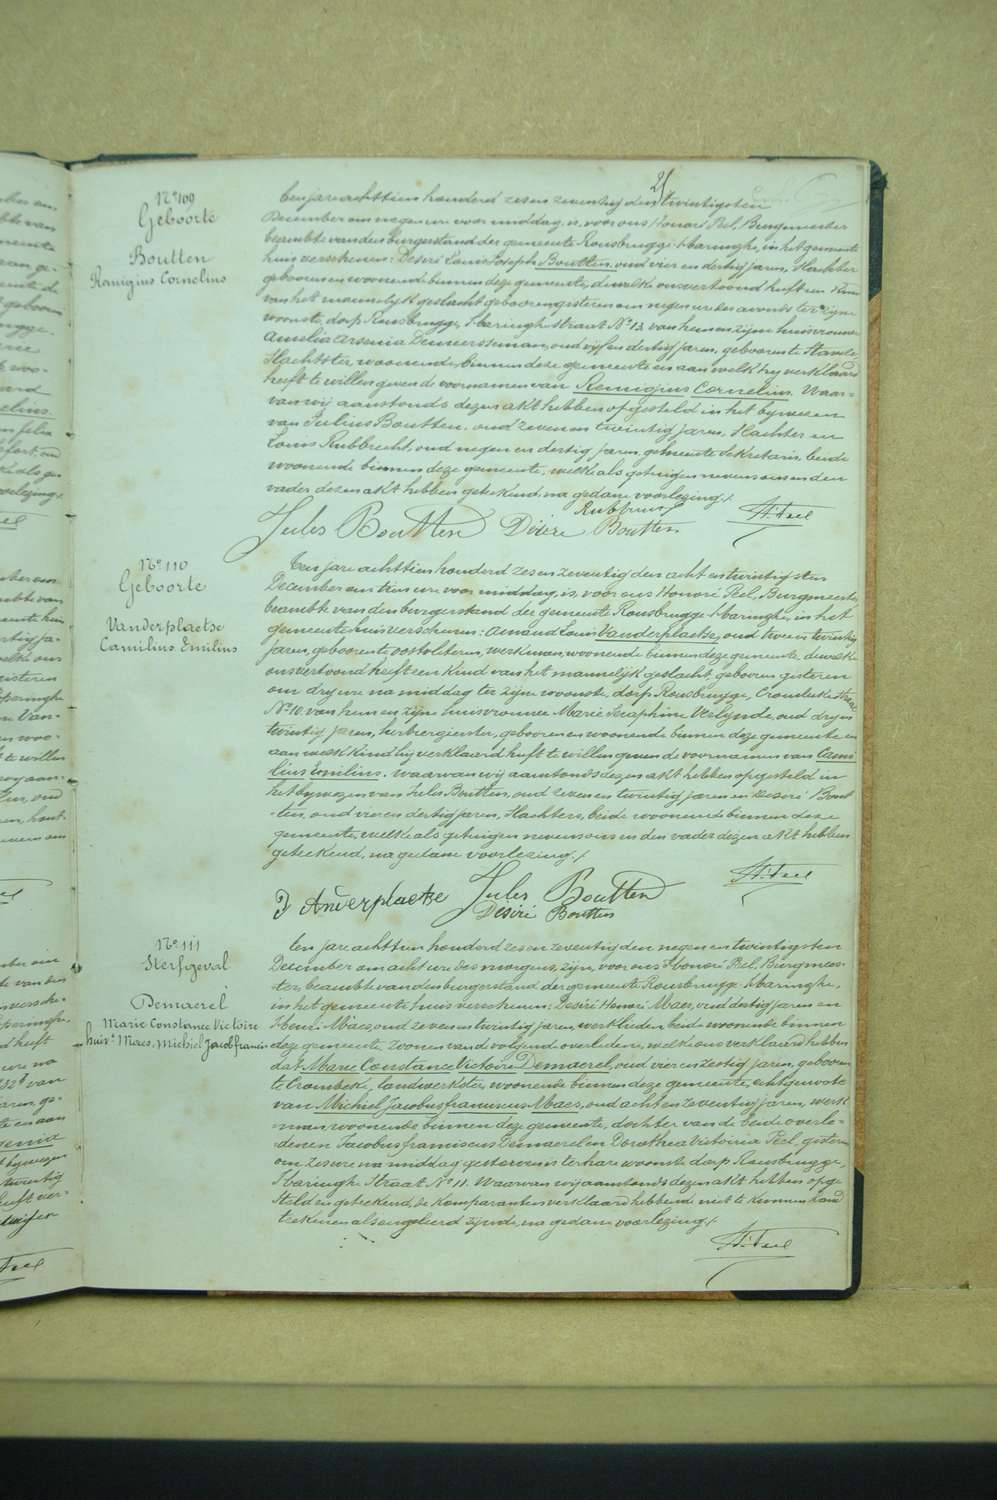 25
N° 109
Geboorte
Boutten
Remigius Cornelius
Ten jare achttien honderd zes en zeventig den twintigsten
December om negen ure voor middag, is voor ons Honoré Peel, Burgmeester
beambte van den burgerstand der gemeente Rousbrugge-Haringhe, in het gemeente
huis verschenen: Desiré Louis Joseph Boutten, oud vier en dertig jaren, Slachter
geboren en woonende binnen deze gemeente, dewelke ons vertoond heeft een kind
van het mannelijk geslacht geboren gisteren om negen ure des avonds ter zijne
woonste, dorp Rousbrugge, Haringhe straat N° 13, van hem en zijne huisvrouwe
Amelia Arsenia Demeersseman, oud vijf en dertig jaren, geboren te Stavele,
Slachtster, woonende binnen deze gemeente en aan welk hij verklaard
heeft te willen geven de voornamen van Remigius Cornelius. Waar-
van wij aanstonds dezen akt hebben opgesteld in het bijwezen
van Julius Boutten, oud zeven en twintig jaren, Slachter en
Louis Rubbrecht, oud negen en dertig jaren, gemeente sekretaris, beide
woonende binnen deze gemeente, welke als getuigen nevens ons en den
vader dezen akt hebben geteekend, na gedane voorlezing./.
Jules Boutten Désire Boutten
H. Peel
N° 110
Geboorte
Vanderplaetse
Camilius Emilius
Ten jare achttien honderd zes en zeventig den acht en twintigsten
December om tien ure voor middag, is voor ons Honoré Peel, Burgmeester,
beambte van den burgerstand der gemeente Rousbrugge-Haringhe, in het
gemeente huis verschenen: Amand Louis Vanderplaetse, oud twee en twintig
jaren, geboren te Oostvleteren, werkman, woonende binnen deze gemeente, dewelke
ons vertoond heeft een kind van het mannelijk geslacht, geboren gisteren
om drij ure na middag ter zijne woonste, dorp Rousbrugge, Crombeke straat
N° 10 van hem en zijne huisvrouwe Marie Seraphine Verlynde, oud drij en
twintig jaren, herbergierster, geboren en woonende binnen deze gemeente en
aan welk kind hij verklaard heeft te willen geven de voornamen van Cami
lius Emilius. Waarvan wij aanstonds dezen akt hebben opgesteld in
het bijwezen van Jules Boutten, oud zeven en twintig jaren en Desiré Bout
-ten, oud vier en dertig jaren, Slachters, beide woonende binnen deze
gemeente welke als getuigen nevens ons en den vader dezen akt hebben
geteekend, na gedane voorlezing./.
H. Peel
Jules Boutten
Desiré Boutten
N° 111
Sterfgeval
Demaerel
Marie Constance Victoire
huisv. Maes, Michiel Jacob francis
Ten jare achttien honderd zes en zeventig den negen en twintigsten
December om acht ure des morgens, zijn, voor ons Honoré Peel Burgmees-
ter, beambte van den burgerstand der gemeente Rousbrugge-Haringhe,
in het gemeente huis verschenen: Desiré Henri Maes, oud dertig jaren en
Henri Maes, oud zeven en twintig jaren, werklieden, beide woonende binnen
deze gemeente, zoonen van de volgende overledene, welke ons verklaard hebben
dat Marie Constance Victoire Demaerel, oud vier en zestig jaren, geboren
te Crombeke, landwerkster, woonende binnen deze gemeente, echtgenoote
van Michiel Jacobus franciscus Maes, oud acht en zeventig jaren, werk
-man, woonende binnen deze gemeente, dochter van de beide overle-
denen Jacobus franciscus Demaerel en Dorothea Victoria Peel, gisteren
om zes ure na middag gestorven is ter hare woonste dorp Rousbrugge,
Haringhe Straat N° 11. Waarvan wij aanstonds dezen akt hebben opge
steld en geteekend, de komparanten verklaard hebbende niet te kunnen hand
teekenen als ongeleerd zijnde, na gedane voorlezing./.
H. Peel